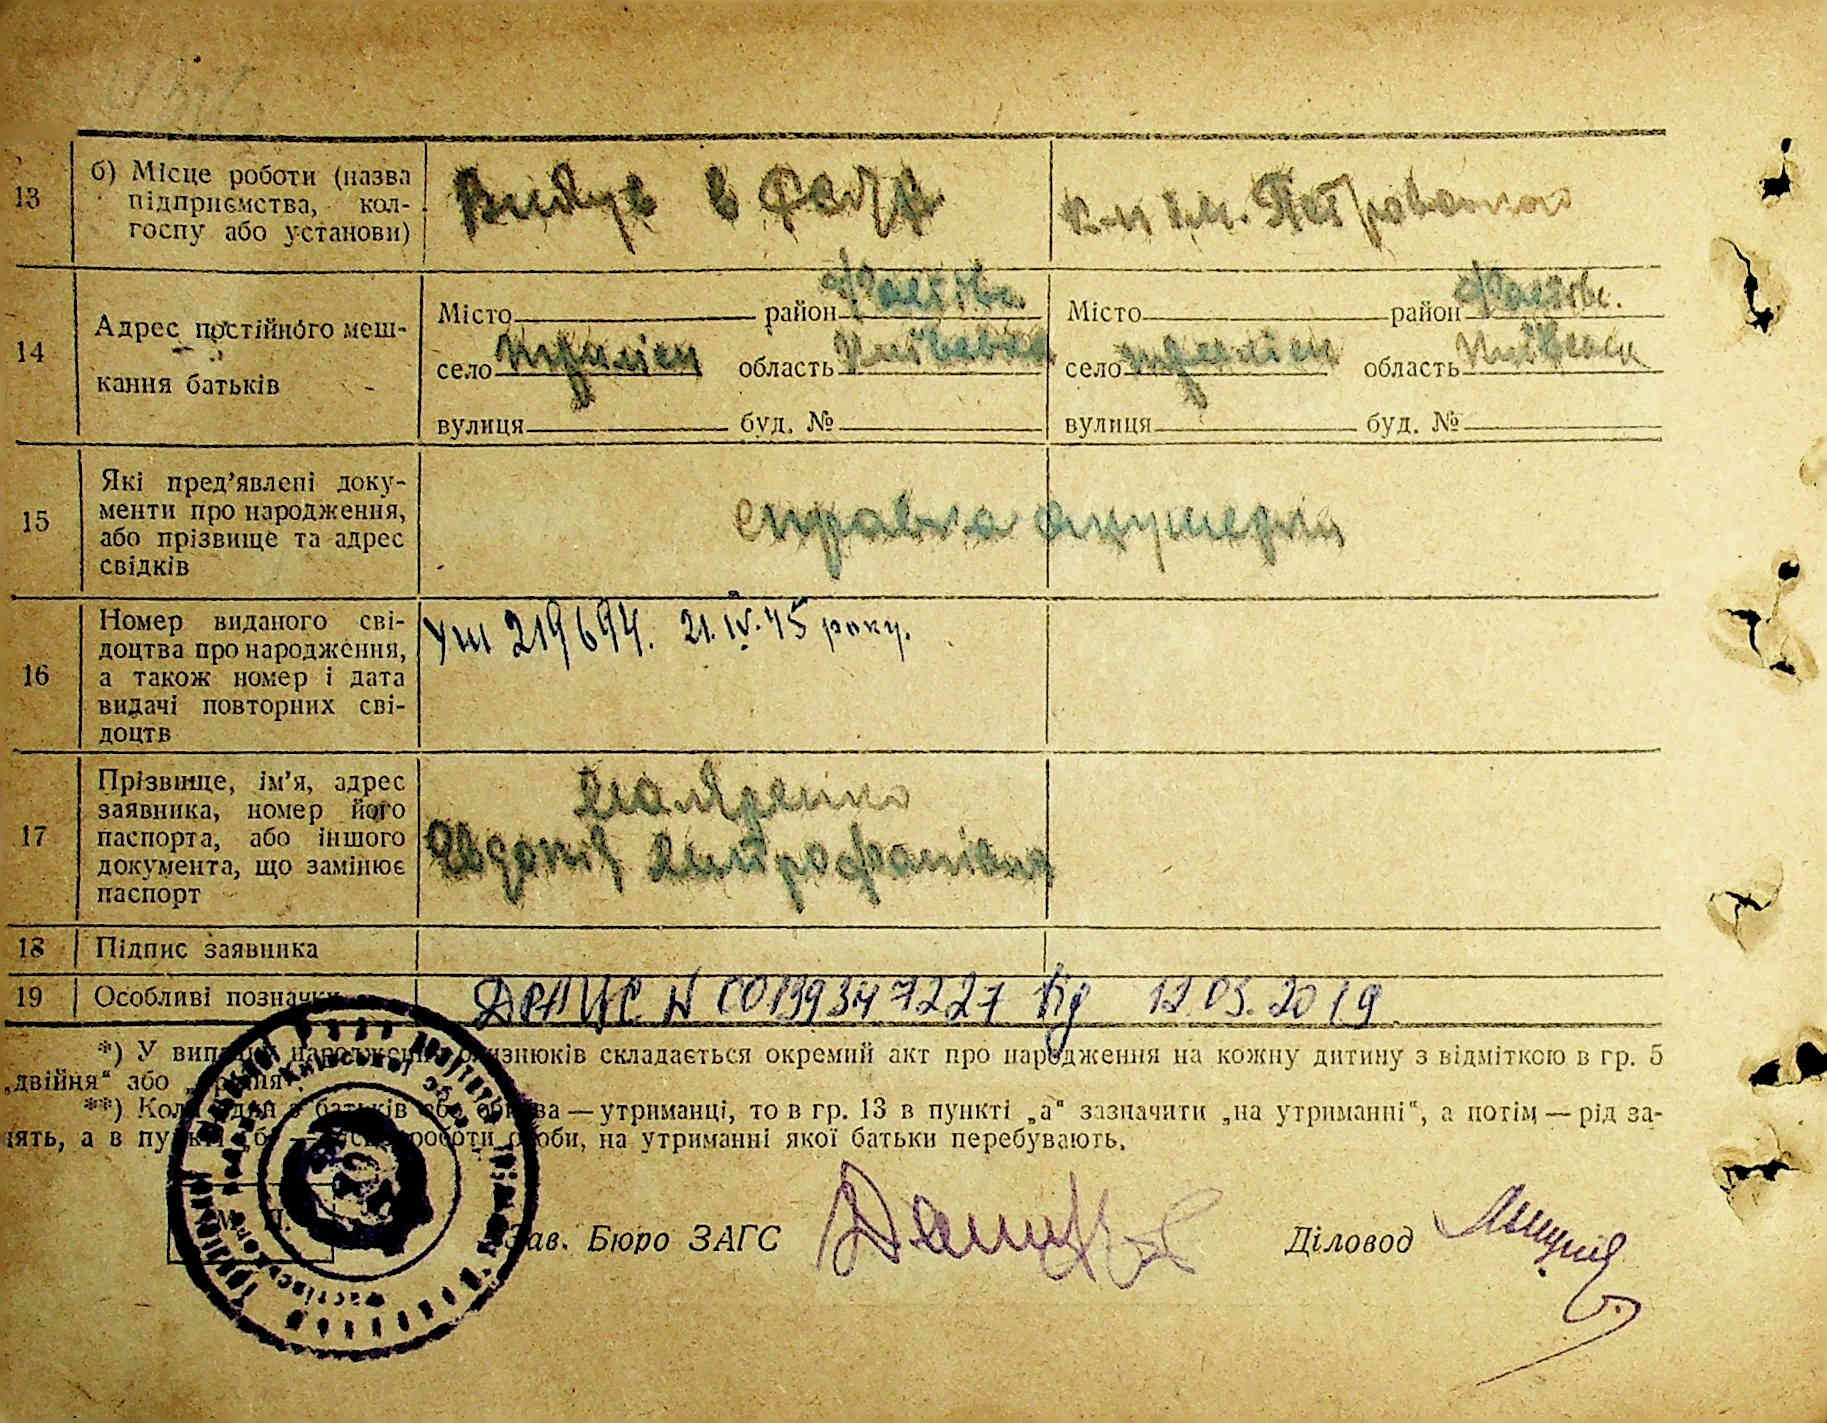 13
б) Місце роботи (назва
підприємства, кол-
госпу або установи)
в
к-п ім. Петровського
14
Адрес постійного меш-
кання батьків
Місто район Фастівс.
село область Київська
вулиця буд. №
Місто район Фастівс.
село область Київськ
вулиця буд. №
15
Які пред’явлені доку-
менти про народження,
або прізвище та адрес
свідків
справка акушерки
16
Номер виданого сві-
доцтва про народження,
а також номер і дата
видачі повторних сві-
доцтв
УШ 219694. 21.IV.45 року.
17
Прізвище, ім’я, адрес
заявника, номер його
паспорта, або іншого
документа, що замінює
паспорт
Митрофанівна
18
Підпис заявника
19
Особливі позначки
ДРАЦС N 00139347227 12.03.2019
*) У випадку народження близнюків складається окремий акт про народження на кожну дитину з відміткою в гр. 5
„двійня“ або „трійня“.
**) Коли один з батьків або обидва — утриманці, то в гр. 13 в пункті „а“ зазначити „на утриманні“, а потім — рід за-
нять, а в пункті „б“ — місце роботи особи, на утриманні якої батьки перебувають.
М. П.
Зав. Бюро ЗАГС
Діловод